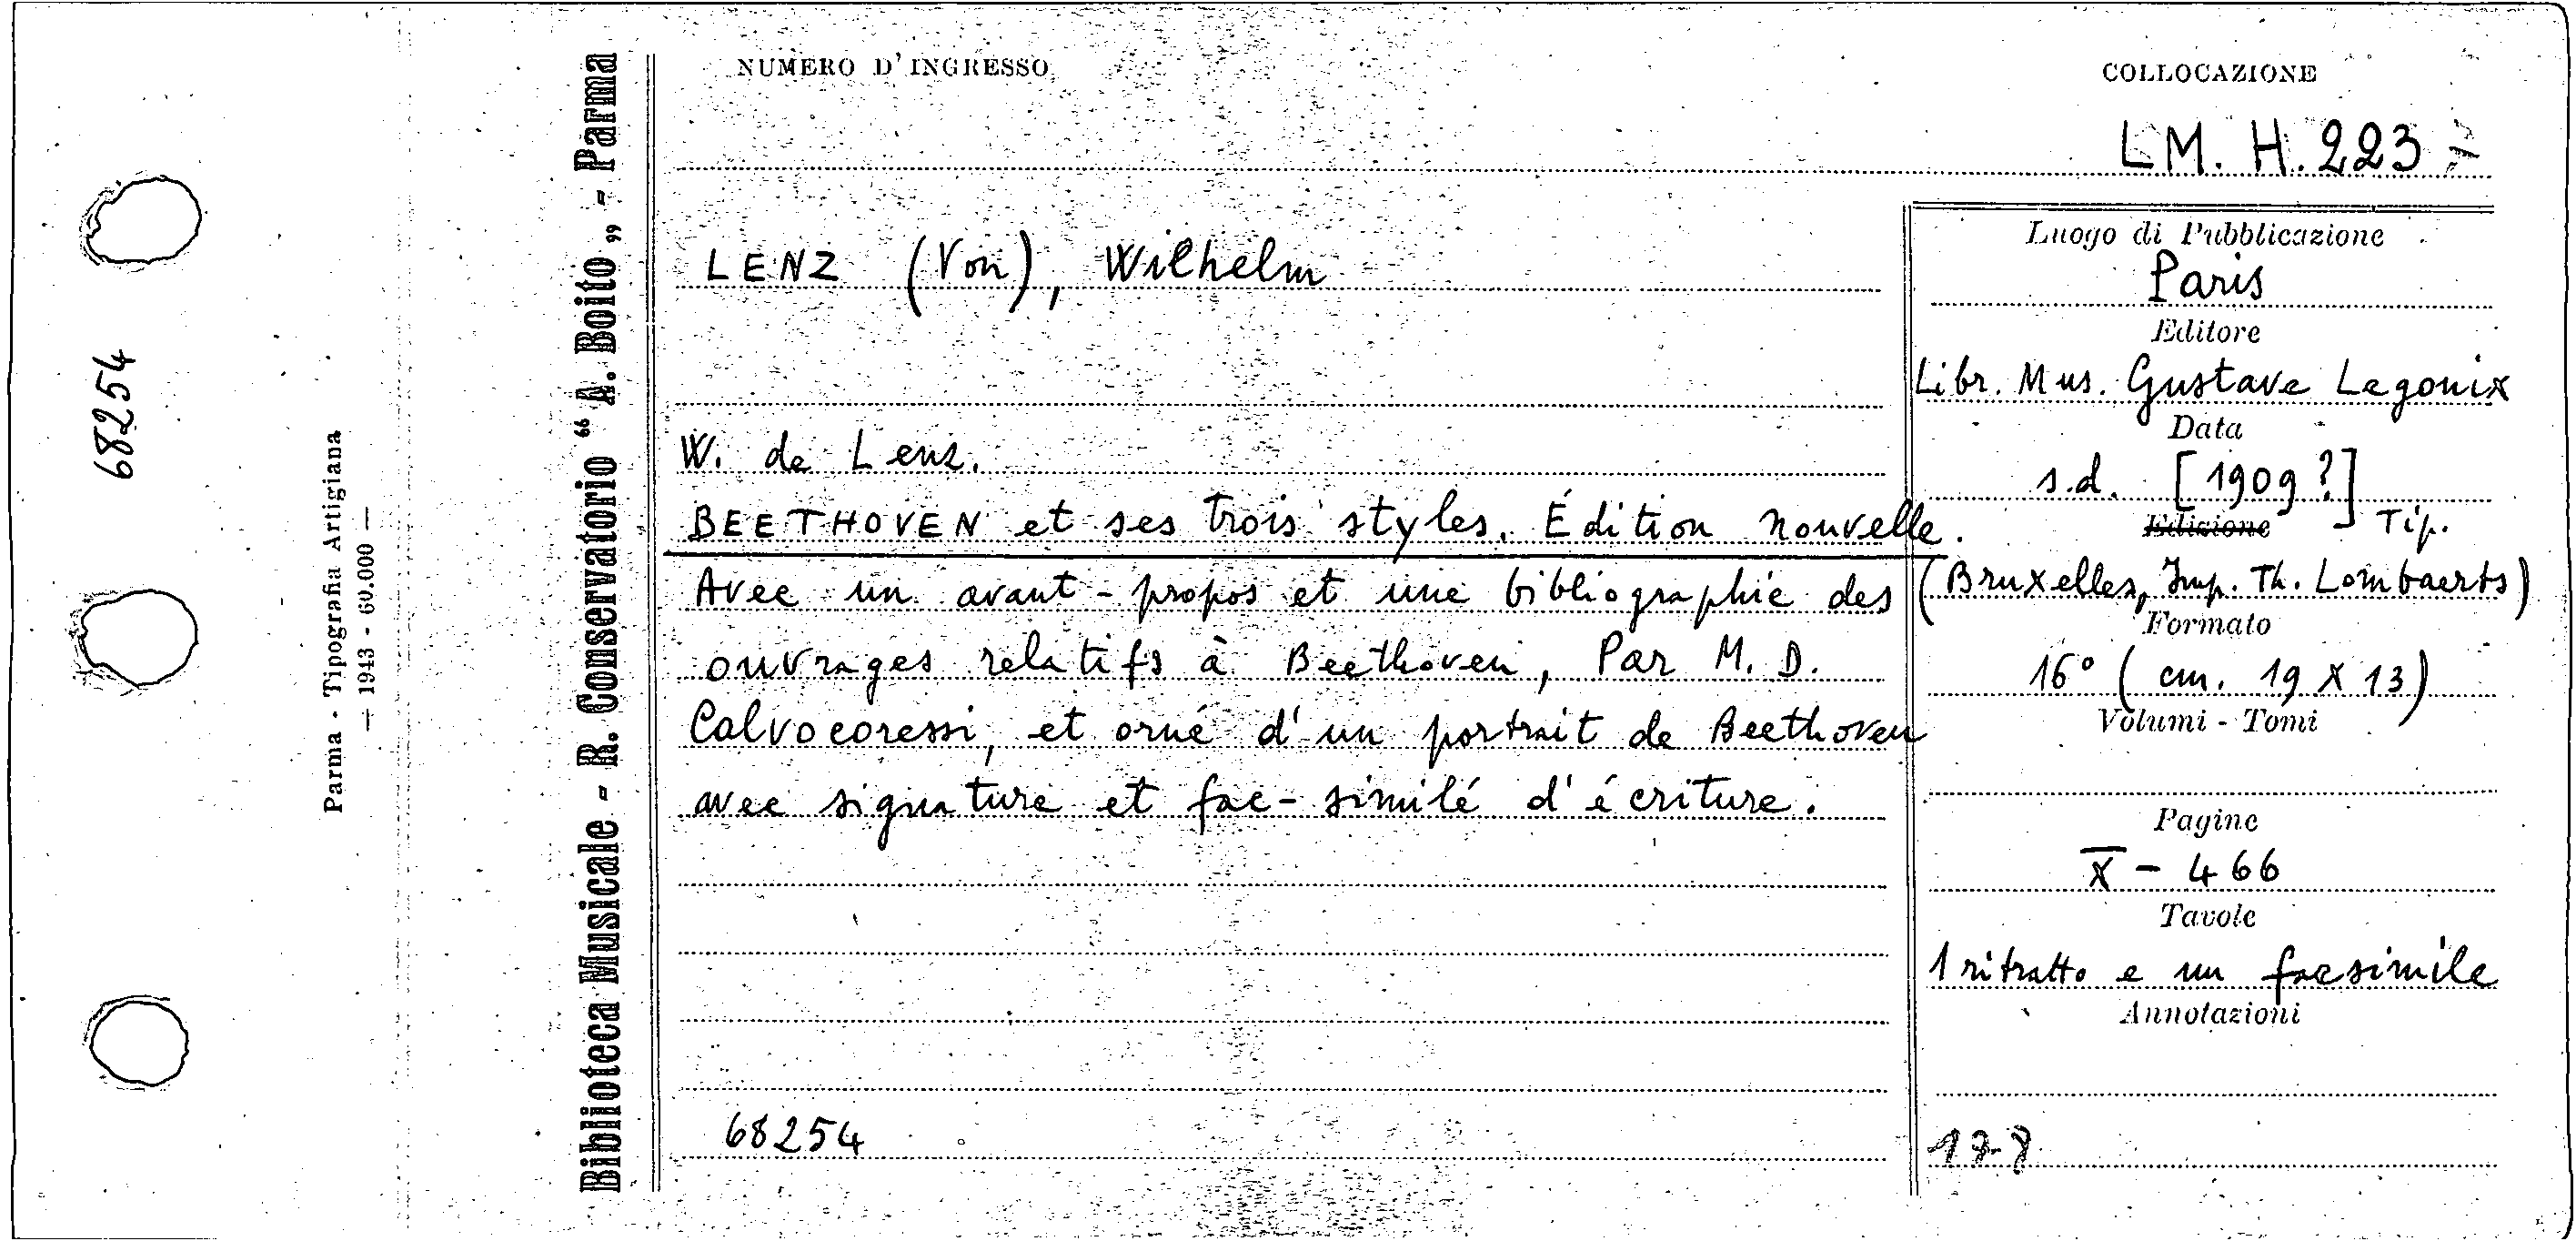 NUMERO D'INGRESSO
COLLOCAZIONE
LM. H. 223
LENZ (Von), Wilhelm
W. de Lenz.
BEETHOVEN et ses trois styles. Édition nouvelle.
Avec un avant-propos et une bibliographie des
ouvrages relatifs à Beethoven, Par M. D.
Calvocoressi, et orné d'un portrait de Beethoven
avec signature et fac-similé d'écriture.
68254
Luogo di Pubblicazione
Paris
Editore
Libr. Mus. Gustave Legouix
Data
s.d. [1909?]
Edizione Tip.
(Bruxelles, Imp. Th. Lombaerts)
Formato
16° (cm. 19 X 13)
Volumi - Tomi
Pagine
X - 466
Tavole
1 ritratto e un facsimile
Annotazioni
Biblioteca Musicale - R. Conservatorio “A. Boito„ - Parma
Parma - Tipografia Artigiana
— 1943 - 60.000 —
68254